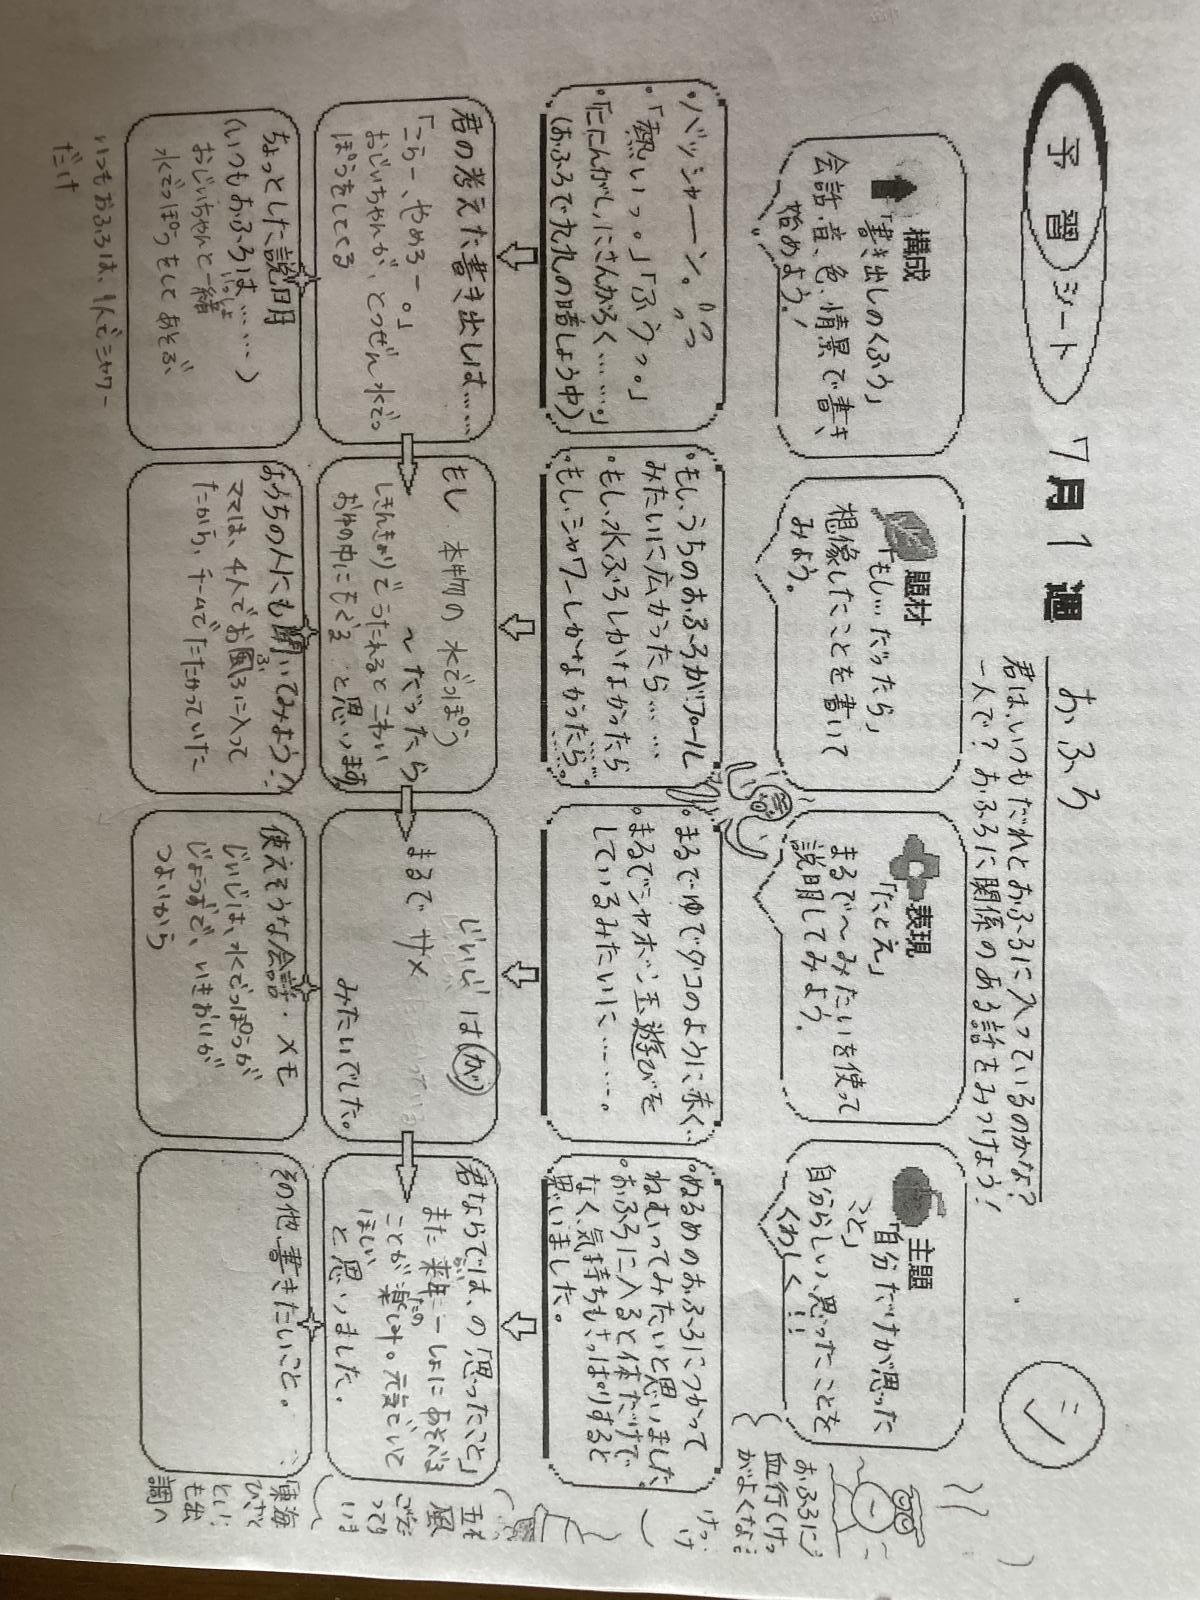 予習シート
7月1週
おふろ
シ
君は、いつもだれとおふろに入っているのかな?
一人で? おふろに関係のある話をみつけよう!
構成
「書き出しのくふう」
会話、音、色、情景で書き
始めよう!
題材
「もし…だったら」
想像したことを書いて
みよう。
表現
「たとえ」
まるで〜みたいを使って
説明してみよう。
主題
「自分だけが思った
こと」
自分らしい、思ったことを
くわしく!!
おふろに
血行(けっ
がよくな
・バッシャーン。
・「熱いっ。」「ふうっ。」
・「ににんがし、にさんがろく………。」
(おふろで九九の暗しょう中)
・もし、うちのおふろがプール
みたいに広かったら……
・もし、水ぶろしかなかったら
・もし、シャワーしかなかったら……。
・まるでゆでダコのように赤く…
・まるでシャボン玉遊びを
しているみたいに………。
・ぬるめのおふろにつかって
ねむってみたいと思いました。
・おふろに入ると体だけで
なく、気持ちもさっぱりすると
思いました。
君の考えた書き出しは……
「こらー、やめろー。」
おじいちゃんが、とつぜん水でっ
ぽうをしてくる
もし 本物の水でっぽう
〜だったら
しきんきょりでうたれるとこわい
おゆの中にもぐる と思います
じいじは(が)
まるで サメ
みたいでした。
君ならでは、の「思ったこと」
また来年一しょにあそべる
ことが楽しみ。元気でいて
ほしい
と思いました。
ちょっとした説明
(いつもおふろは………)
おじいちゃんと一緒
水でっぽうをしてあそぶ、
いつもおふろは、1人でシャワー
だけ
おうちの人にも聞いてみよう!
ママは、4人でお風ろに入って
たから、チームでたたかっていた
使えそうな会話・メモ
じいじは、水でっぽうが
じょうずで、いきおいが
つよいから
その他、書きたいこと。